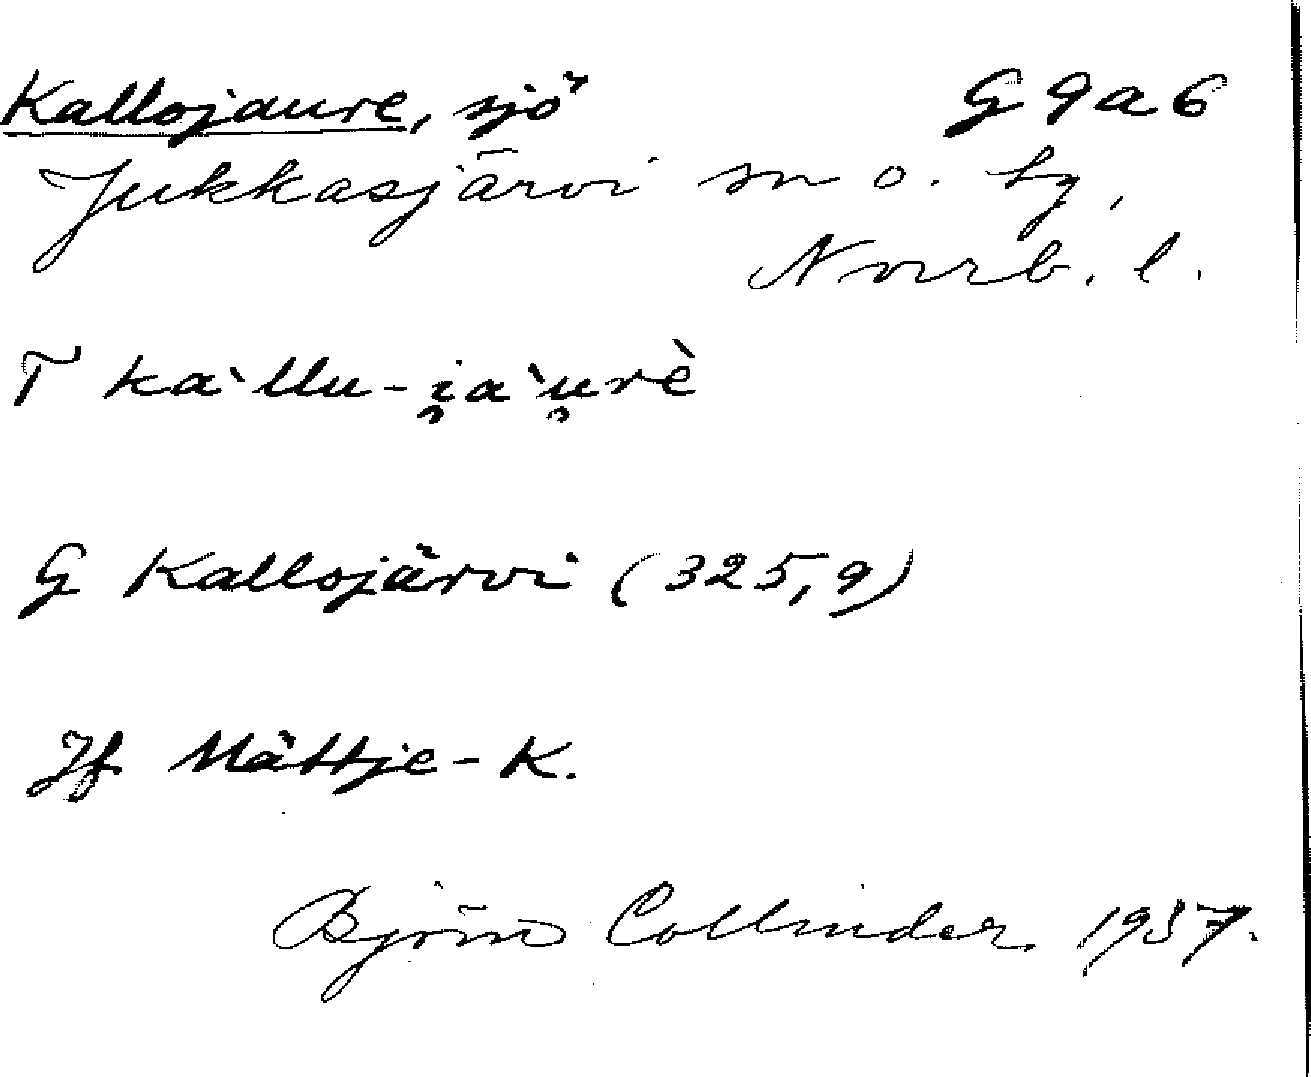 Kallojaure, sjö G 9 a 6
Jukkasjärvi sn o. tg,
Norrb. l.
T ka`llu-i̯a`u̯rè
G Kallojärvi (325,9)
Jf Mättje-K.
Björn Collinder 1937.